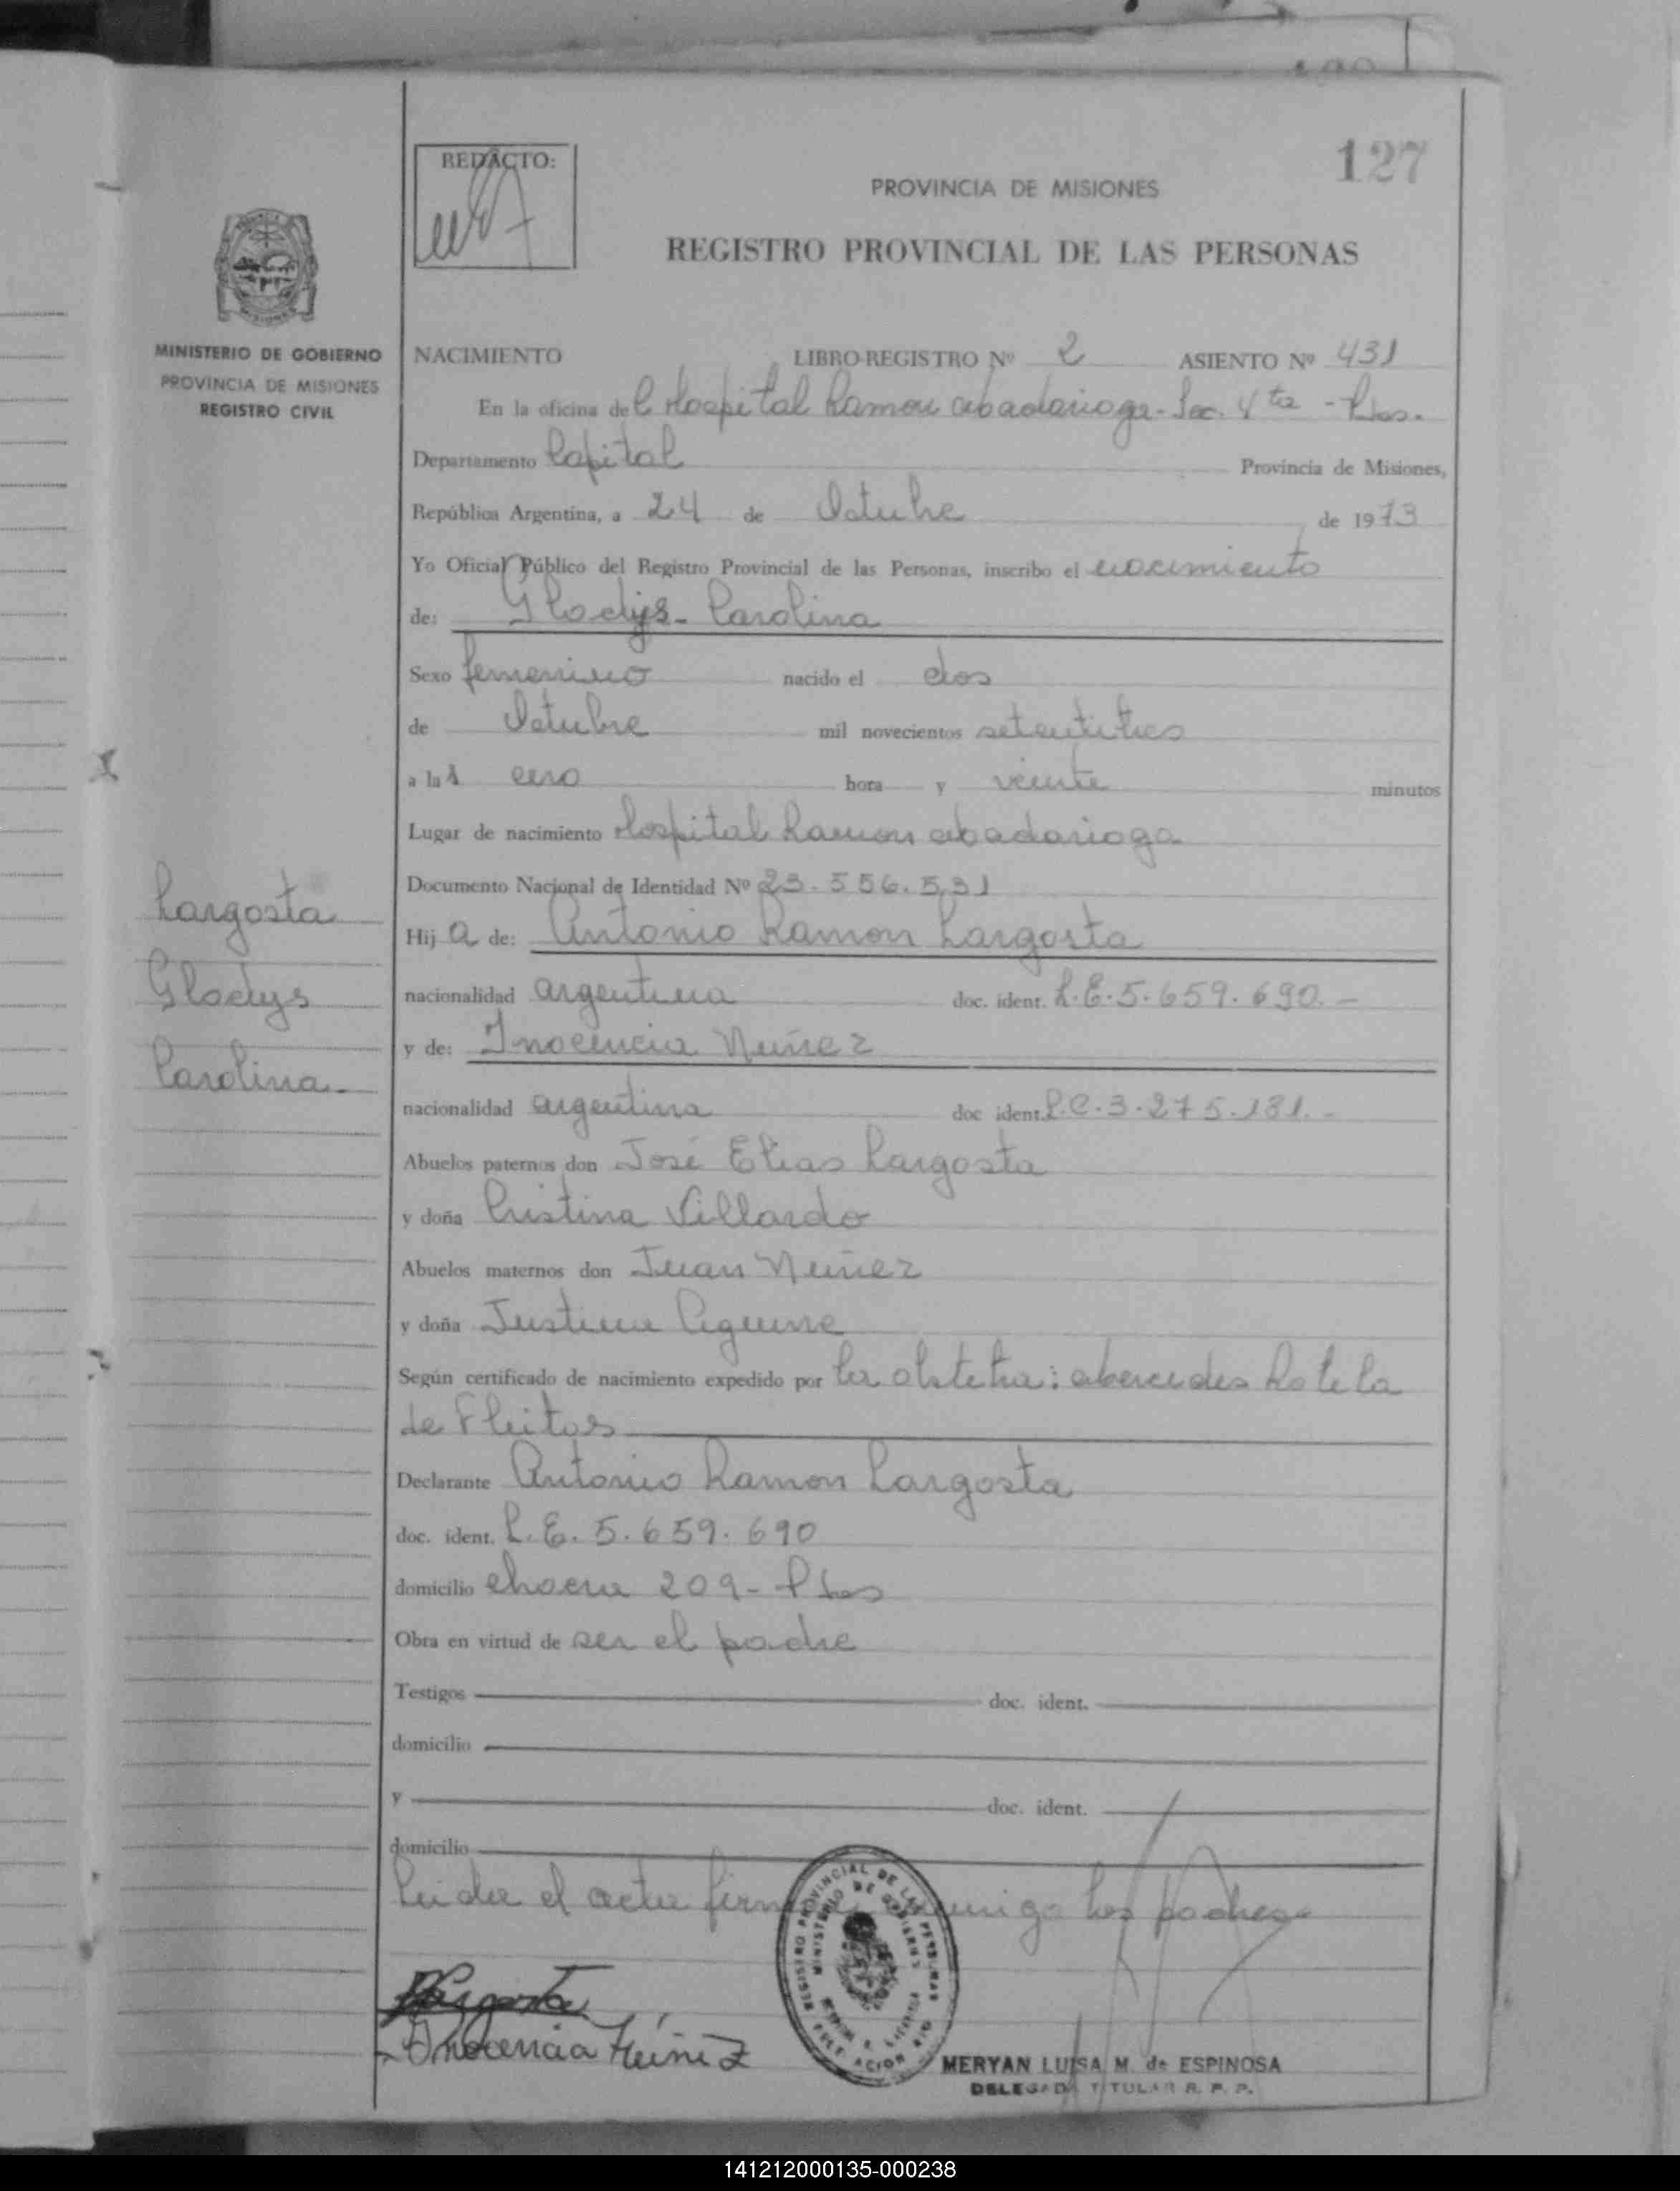 127
REDACTO:
PROVINCIA DE MISIONES
REGISTRO PROVINCIAL DE LAS PERSONAS
MINISTERIO DE GOBIERNO
PROVINCIA DE MISIONES
REGISTRO CIVIL
NACIMIENTO LIBRO-REGISTRO Nº 2 ASIENTO Nº 431
En la oficina del Hospital Ramon abadarioga - Sec. 4ta - Pdas.
Departamento Capital Provincia de Misiones,
República Argentina, a 24 de Octubre de 1973
Yo Oficial Público del Registro Provincial de las Personas, inscribo el nacimiento
de: Gladys - Carolina
Sexo femenino nacido el dos
de Octubre mil novecientos setentitres
a la cero hora y veinte minutos
Lugar de nacimiento Hospital Ramon abadarioga
Documento Nacional de Identidad Nº 23.556.531
Largosta
Gladys
Carolina.-
Hija de: Antonio Ramon Largosta
nacionalidad argentina doc. ident. L.E.5.659.690.-
y de: Inocencia Nuñez
nacionalidad argentina doc ident. L.C.3.275.181.-
Abuelos paternos don José Elias Largosta
y doña Cristina Villardo
Abuelos maternos don Juan Nuñez
y doña Justina Aguirre
Según certificado de nacimiento expedido por la obstetra: Rotela
de Fleitas
Declarante Antonio Ramon Largosta
doc. ident. L.E. 5.659.690
domicilio chacra 209 - Pdas
Obra en virtud de ser el padre
Testigos doc. ident.
domicilio
y doc. ident.
domicilio
Leida el acta firman conmigo los padres
REGISTRO PROVINCIAL DE LAS PERSONAS
MINISTERIO DE GOBIERNO
Largosta
Inocencia Núñez
MERYAN LUISA M. de ESPINOSA
DELEGADA TITULAR R. P. P.
141212000135-000238